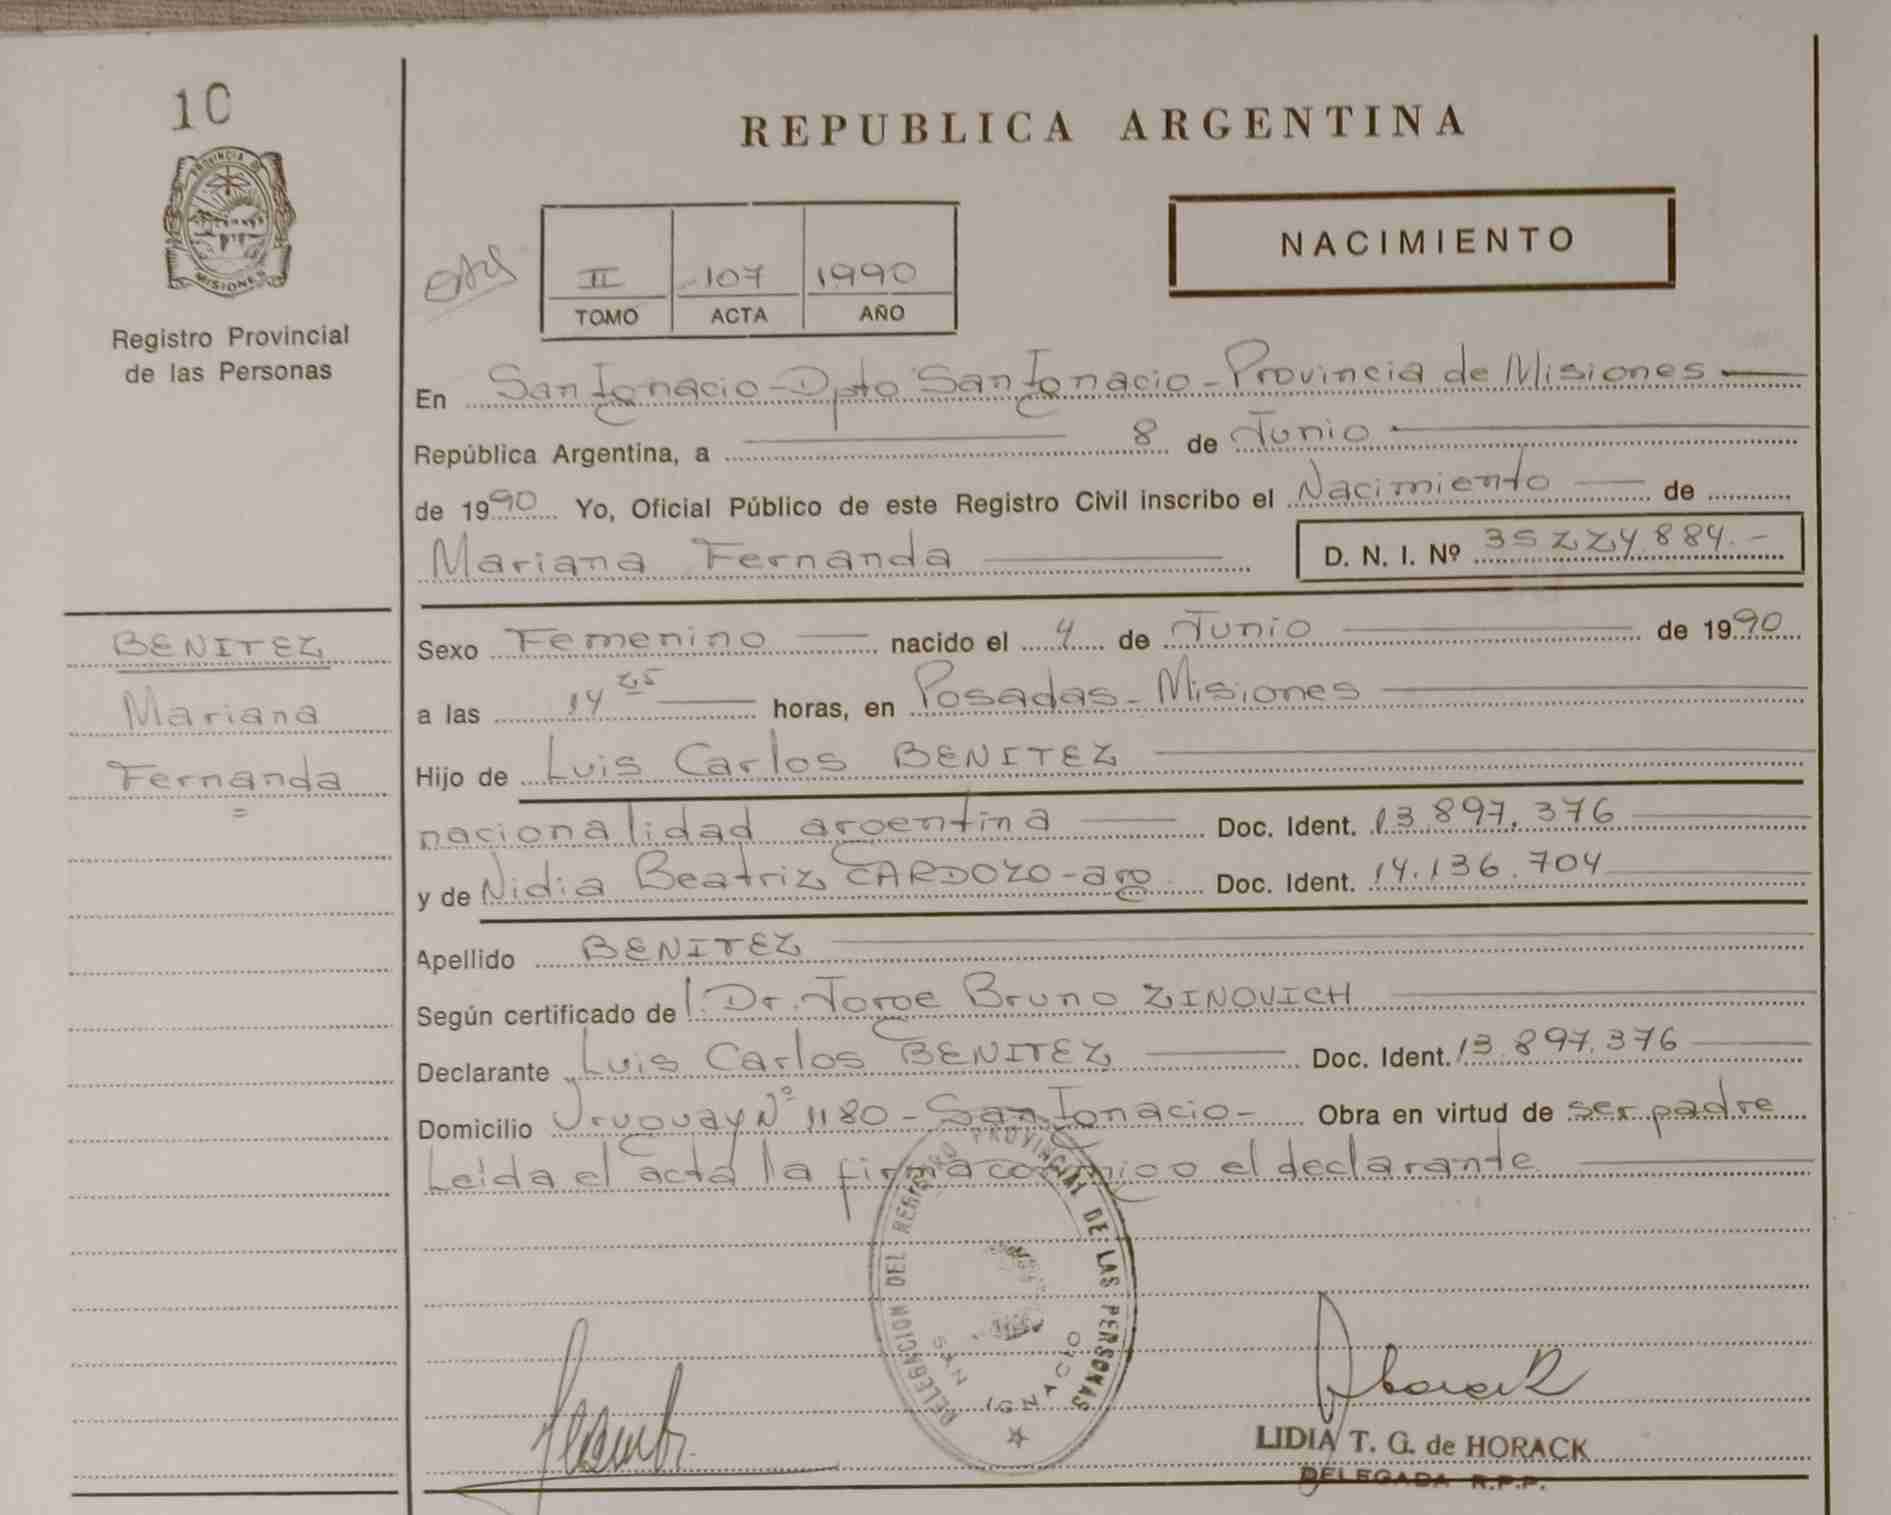 10
PROVINCIA DE
MISIONES
Registro Provincial
de las Personas
REPUBLICA ARGENTINA
NACIMIENTO
II 107 1990
TOMO ACTA AÑO
En San Ignacio - Dpto San Ignacio - Provincia de Misiones
República Argentina, a 8 de Junio
de 1990 Yo, Oficial Público de este Registro Civil inscribo el Nacimiento de
Mariana Fernanda D. N. I. Nº 35 224.884.-
BENITEZ
Mariana
Fernanda
Sexo Femenino nacido el 4 de Junio de 1990
a las 14 25 horas, en Posadas - Misiones
Hijo de Luis Carlos BENITEZ
nacionalidad argentina Doc. Ident. 13.897.376
y de Nidia Beatriz CARDOZO - arg Doc. Ident. 14.136.704
Apellido BENITEZ
Según certificado de l Dr. Jorge Bruno ZINOVICH
Declarante Luis Carlos BENITEZ Doc. Ident. 13.897.376
Domicilio Uruguay Nº 1180 - San Ignacio - Obra en virtud de ser padre
Leida el acta la firma conmigo el declarante
DELEGACION DEL REGISTRO PROVINCIAL DE LAS PERSONAS
SAN IGNACIO
LIDIA T. G. de HORACK
DELEGADA R.P.P.